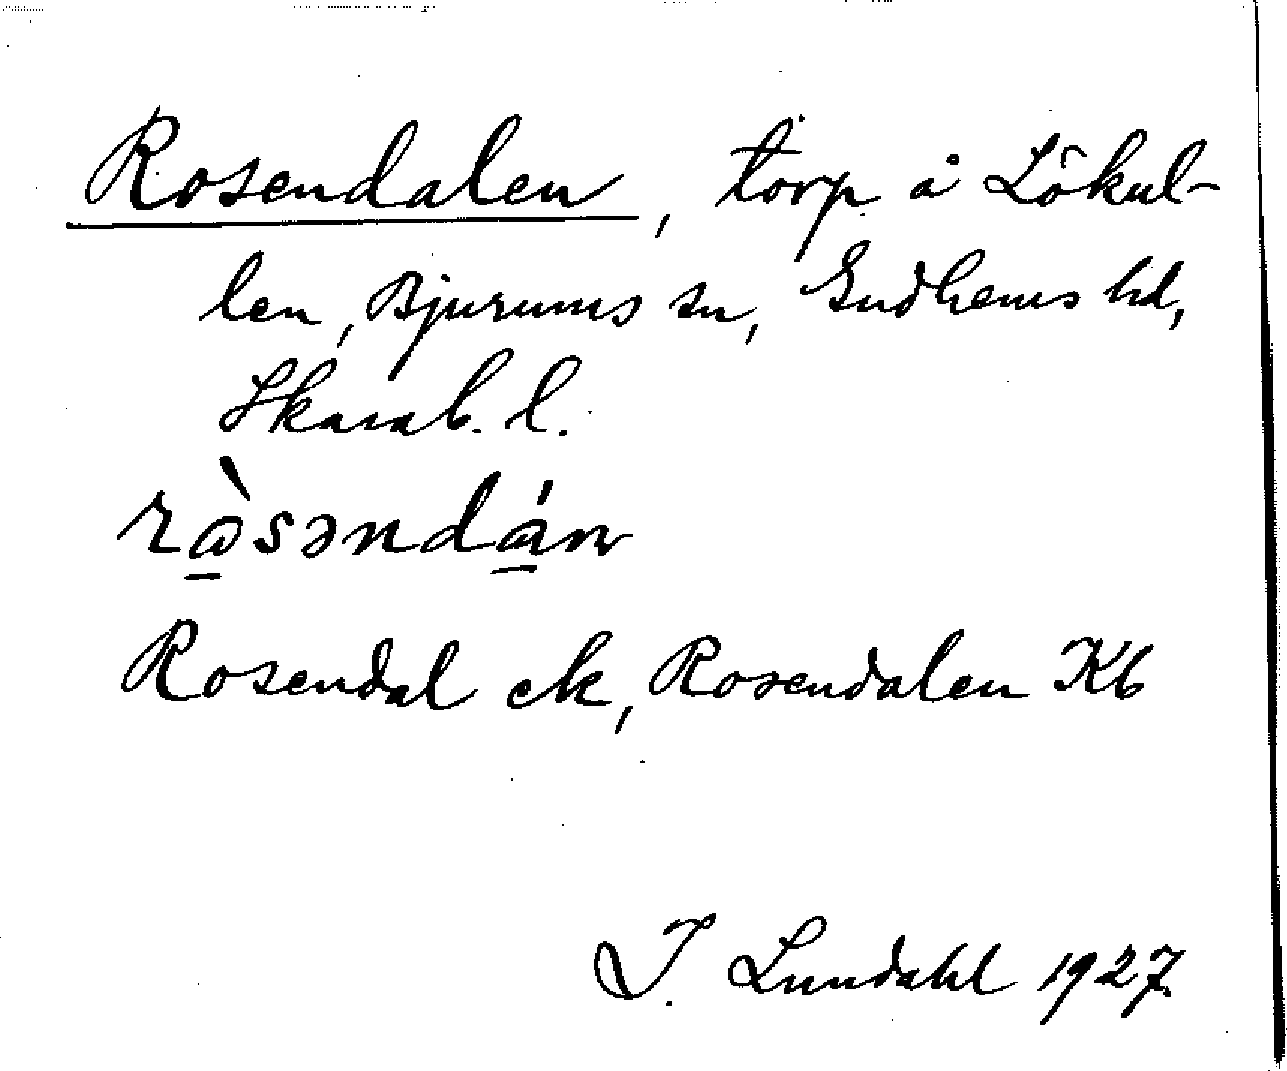 Rosendalen, torp å Lökul-
len, Bjurums sn, Gudhems hd,
Skarab. l.
rⱥ̀səndán
Rosendal ek, Rosendalen Kb
I. Lundahl 1927.